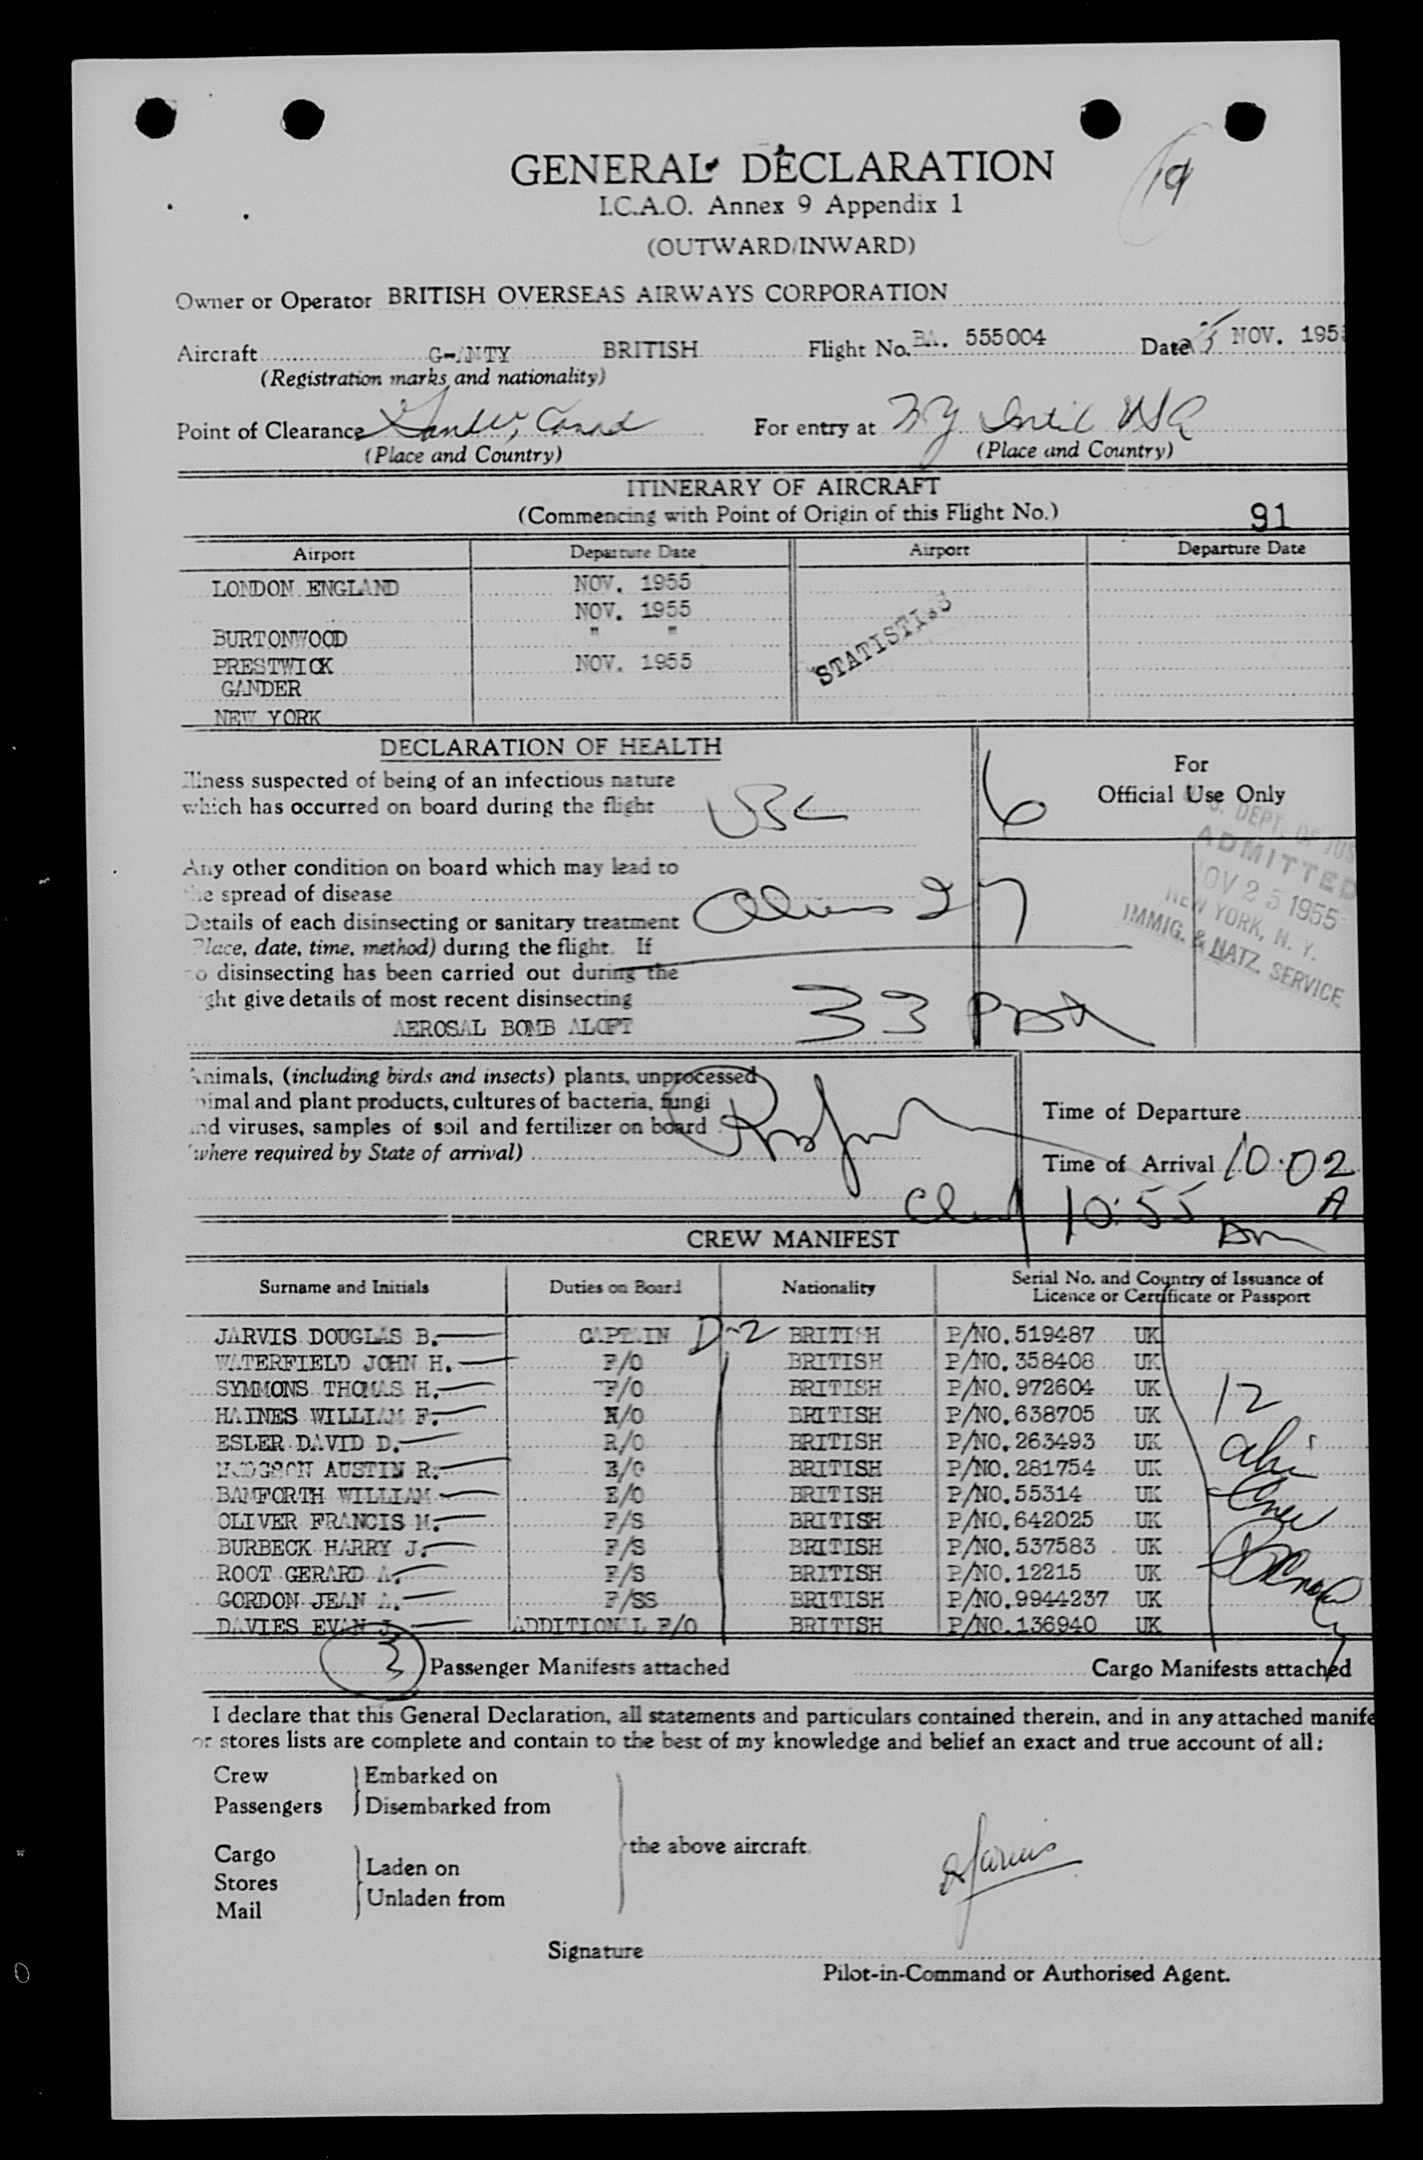 19
GENERAL DECLARATION
I.C.A.O. Annex 9 Appendix 1
(OUTWARD/INWARD)
Owner or Operator BRITISH OVERSEAS AIRWAYS CORPORATION
Aircraft G-ANTY BRITISH Flight No. BA. 555004 Date 25 NOV. 195
(Registration marks and nationality)
Point of Clearance Gander, Canad For entry at NY Intl USA
(Place and Country) (Place and Country)
ITINERARY OF AIRCRAFT
(Commencing with Point of Origin of this Flight No.) 91
Airport Departure Date Airport Departure Date
LONDON ENGLAND NOV. 1955
NOV. 1955
BURTONWOOD " "
PRESTWICK NOV. 1955
GANDER
NEW YORK
STATISTICS
DECLARATION OF HEALTH
Illness suspected of being of an infectious nature
which has occurred on board during the flight
USC 6
For
Official Use Only
Any other condition on board which may lead to
the spread of disease
Details of each disinsecting or sanitary treatment
Place, date, time, method) during the flight. If
no disinsecting has been carried out during the
ght give details of most recent disinsecting
AEROSAL BOMB ALOFT
Aliens 27
33
U.S. DEPT. OF JUS
ADMITTED
NOV 25 1955
NEW YORK, N. Y.
IMMIG. & NATZ. SERVICE
Animals, (including birds and insects) plants, unprocessed
nimal and plant products, cultures of bacteria, fungi
and viruses, samples of soil and fertilizer on board
(where required by State of arrival)
Time of Departure
Time of Arrival 10:02
A
10:55 Am
CREW MANIFEST
Surname and Initials Duties on Board Nationality Serial No. and Country of Issuance of
Licence or Certificate or Passport
JARVIS DOUGLAS B. CAPTAIN D-2 BRITISH P/NO.519487 UK
WATERFIELD JOHN H. F/O BRITISH P/NO.358408 UK
SYMMONS THOMAS H. F/O BRITISH P/NO.972604 UK
HAINES WILLIAM F. N/O BRITISH P/NO.638705 UK
ESLER DAVID D. R/O BRITISH P/NO.263493 UK
HODGSON AUSTIN R. E/O BRITISH P/NO.281754 UK
BAMFORTH WILLIAM E/O BRITISH P/NO.55314 UK
OLIVER FRANCIS M. F/S BRITISH P/NO.642025 UK
BURBECK HARRY J. F/S BRITISH P/NO.537583 UK
ROOT GERARD A. F/S BRITISH P/NO.12215 UK
GORDON JEAN A. F/SS BRITISH P/NO.9944237 UK
DAVIES EVAN J. ADDITIONAL F/O BRITISH P/NO.136940 UK
12
3 Passenger Manifests attached Cargo Manifests attached
I declare that this General Declaration, all statements and particulars contained therein, and in any attached manife
or stores lists are complete and contain to the best of my knowledge and belief an exact and true account of all:
Crew Embarked on
Passengers Disembarked from
the above aircraft.
Cargo Laden on
Stores
Mail Unladen from
D Jarvis
Signature
Pilot-in-Command or Authorised Agent.